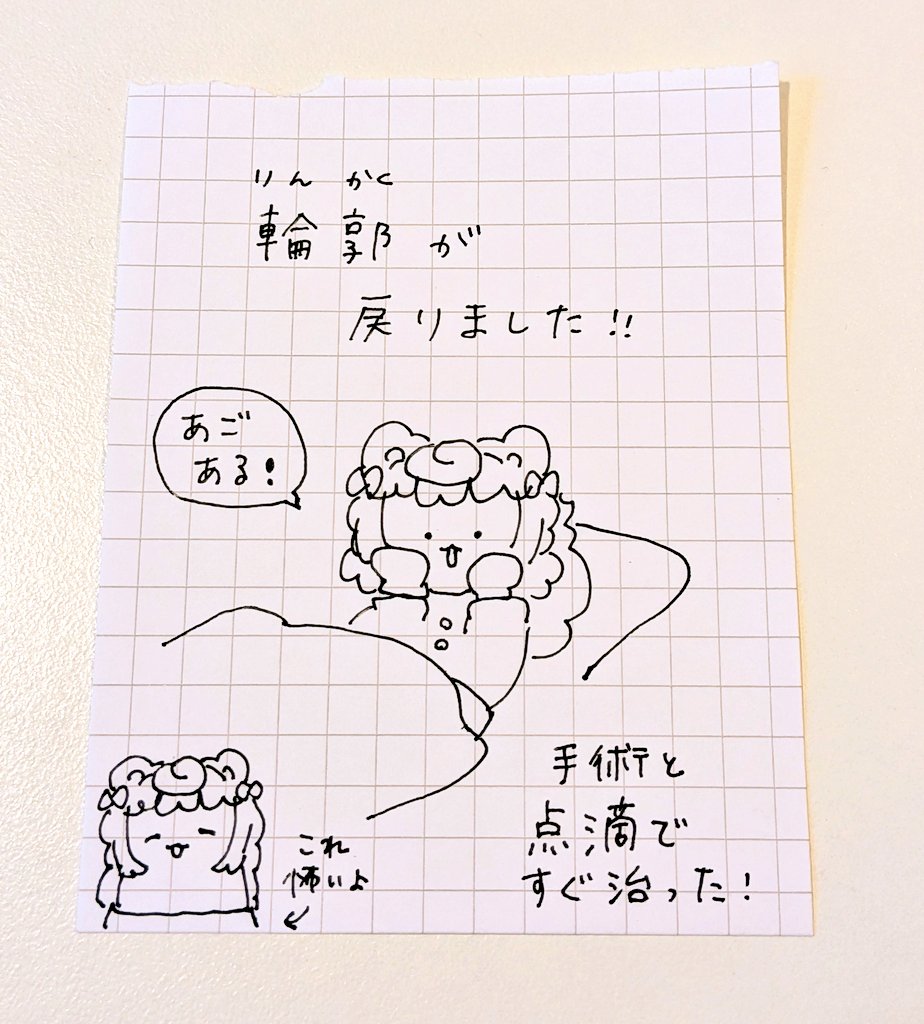 りんかく
輪郭が
戻りました!!
あご
ある!
手術と
点滴で
すぐ治った!
これ
怖いよ